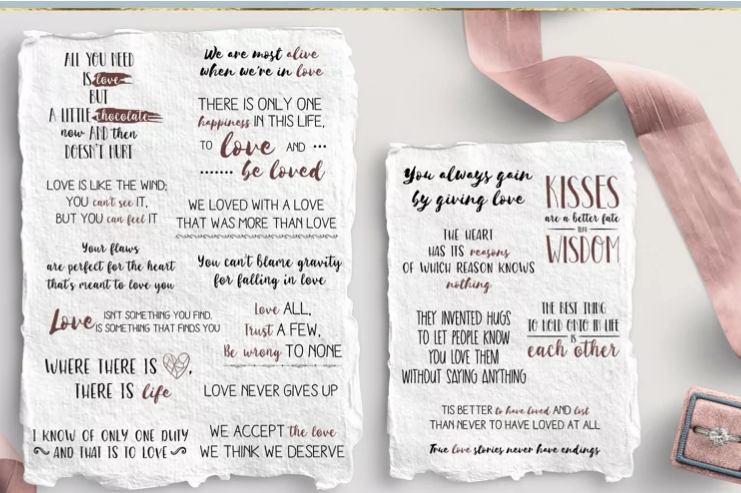 ALL YOU NEED
IS love
BUT
A LITTLE chocolate
now AND then
DOESN'T HURT
LOVE IS LIKE THE WIND;
YOU can't see IT,
BUT YOU can feel IT
Your flaws
are perfect for the heart
that's meant to love you
Love ISN'T SOMETHING YOU FIND.
IS SOMETHING THAT FINDS YOU
WHERE THERE IS
THERE IS life
I KNOW OF ONLY ONE DUTY
AND THAT IS TO LOVE
We are most alive
when we're in love
THERE IS ONLY ONE
happiness IN THIS LIFE,
TO love AND ...
....... be loved
WE LOVED WITH A LOVE
THAT WAS MORE THAN LOVE
You can't blame gravity
for falling in love
Love ALL,
Trust A FEW,
Be wrong TO NONE
LOVE NEVER GIVES UP
WE ACCEPT the love
WE THINK WE DESERVE
You always gain
by giving love
KISSES
are a better fate
THAN
WISDOM
THE HEART
HAS ITS reasons
OF WHICH REASON KNOWS
nothing
THEY INVENTED HUGS
TO LET PEOPLE KNOW
YOU LOVE THEM
WITHOUT SAYING ANYTHING
THE BEST THING
TO HOLD ONTO IN LIFE
IS
each other
TIS BETTER to have loved AND lost
THAN NEVER TO HAVE LOVED AT ALL
True love stories never have endings